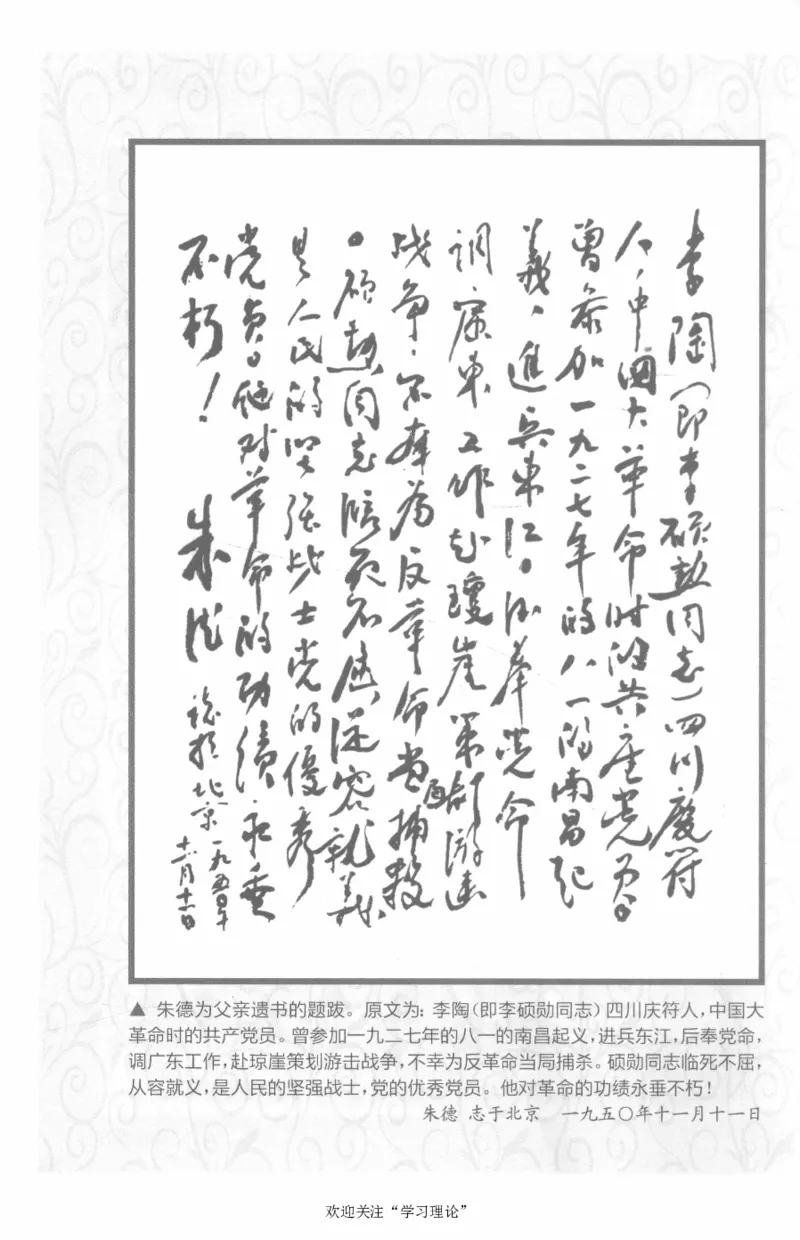 李陶(即李碩勛同志)四川慶符
人,中國大革命时的共产党员。
曾参加一九二七年的八一的南昌起
義,進兵東江。后奉党命
調廣東工作赴瓊崖策劃游击
战争,不幸為反革命当捕殺
。碩勛同志临死不屈从容就義
是人民的坚强战士党的優秀
党員。他对革命的功績永垂
不朽!
朱德 誌於北京一九五〇年
十一月十一日
▲ 朱德为父亲遗书的题跋。原文为:李陶(即李硕勋同志)四川庆符人,中国大
革命时的共产党员。曾参加一九二七年的八一的南昌起义,进兵东江,后奉党命,
调广东工作,赴琼崖策划游击战争,不幸为反革命当局捕杀。硕勋同志临死不屈,
从容就义,是人民的坚强战士,党的优秀党员。他对革命的功绩永垂不朽!
朱德 志于北京 一九五〇年十一月十一日
欢迎关注“学习理论”